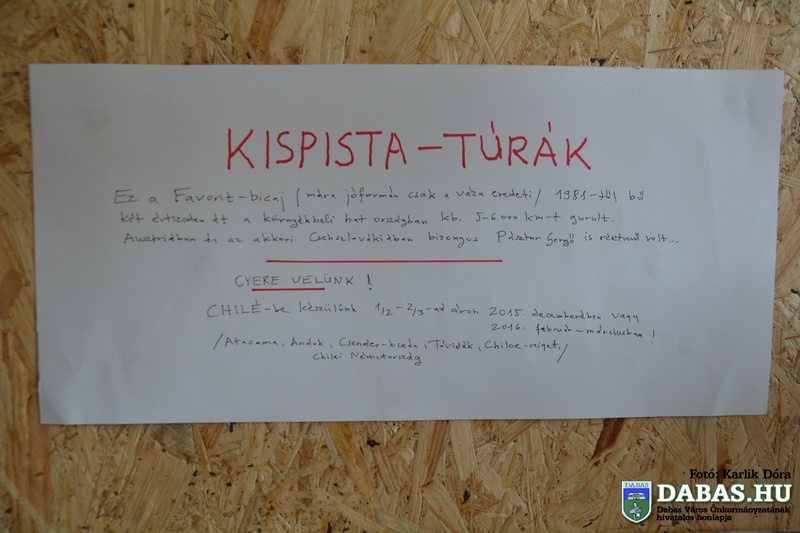 KISPISTA-TÚRÁK
Ez a Favorit-bicaj /mára jóformán csak a váza eredeti/ 1981-től bő
két évtizeden át a környékbeli hat országban kb. 5-6000 km-t gurult.
Ausztriában és az akkori Csehszlovákiában bizonyos Pásztor Gergő is résztvevő volt...
GYERE VELÜNK!
CHILÉ-be készülünk 1/2-2/3-ad áron 2015. decemberében vagy
2016. február-márciusban!
/Atacama, Andok, Csendes-óceán, Tűvidék, Chiloe-sziget,
Chilei Németország/
Fotó: Karlik Dóra
DABAS
DABAS.HU
Dabas Város Önkormányzatának
hivatalos honlapja